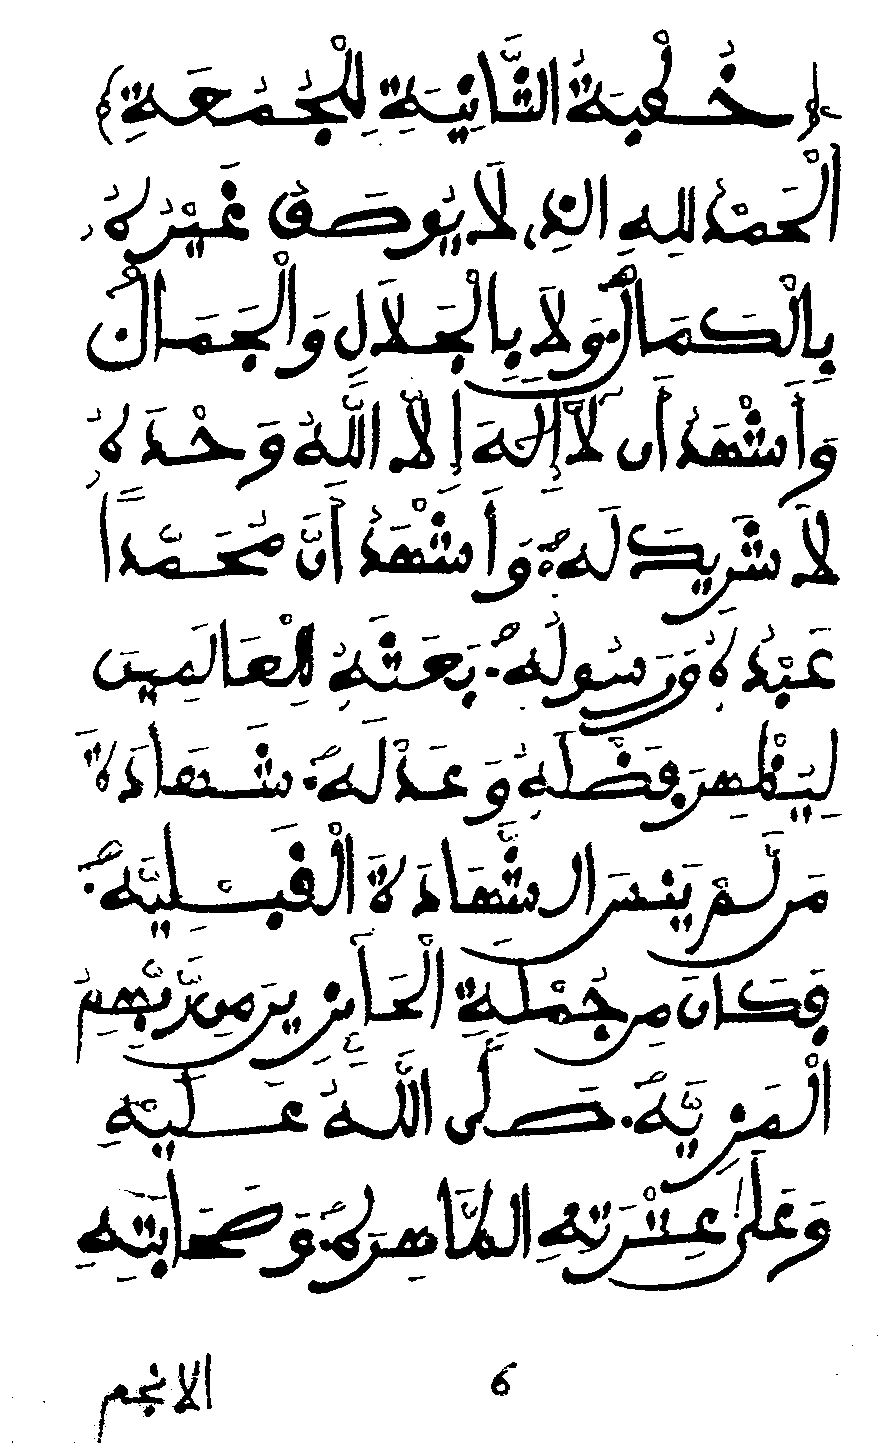 ﴿خُطْبَةُ الثَّانِيَةِ لِلْجُمُعَةِ﴾
اَلْحَمْدُ لِلهِ الذِي لَا يُوصَفُ غَيْرُهُ
بِالْكَمَالْ وَلَا بِالْجَلَالِ وَالْجَمَالْ
وَأَشْهَدُ أَن لَّا إِلَهَ إِلَّا اللَّهُ وَحْدَهُ
لَا شَرِيكَ لَهُ وَأَشْهَدُ أَنَّ مُحَمَّداً
عَبْدُهُ وَرَسُولُهُ بَعَثَهُ لِلْعَالَمِينَ
لِيَظْهَرَ فَضْلُهُ وَعَدْلُهُ شَهَادَةَ
مَن لَّمْ يَنْسَ الشَّهَادَةَ الْقَبْلِيَّةَ
فَكَانَ مِن جُمْلَةِ الْحَائِزِينَ مِن رَّبِّهِم
الْمَزِيَّةَ صَلَّى اللَّهُ عَلَيْهِ
وَعَلَى عِتْرَتِهِ الطَّاهِرَهْ وَصَحَابَتِهِ
6
الانجم